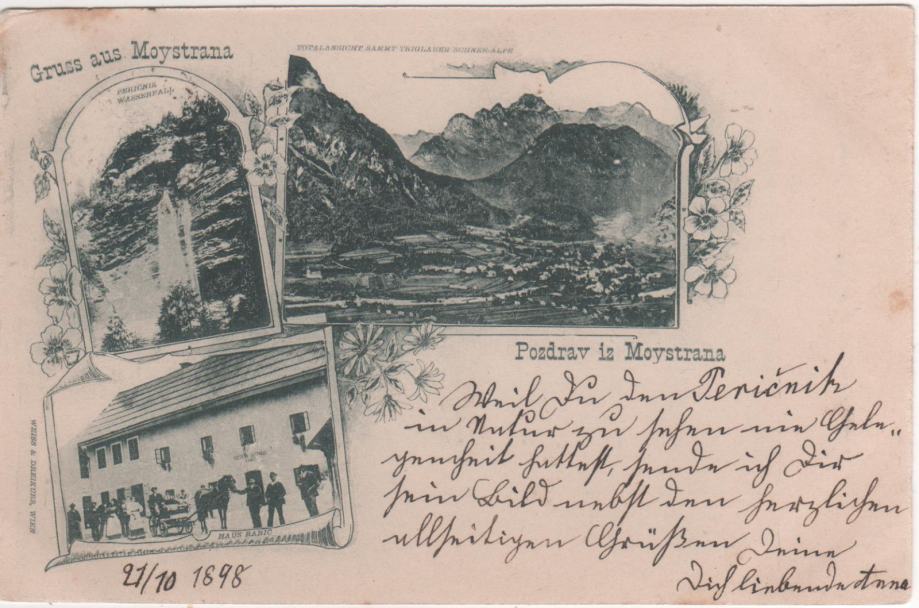 Gruss aus Moystrana
TOTALANSICHT SAMMT TRIGLAUER SCHNEE-ALPE
PERIČNIK
WASSERFALL
Pozdrav iz Moystrana
Weil Du den Peričnik
in Natur zu sehen nie Gele„
genheit hattest, sende ich Dir
sein Bild nebst den herzlichen
allseitigen Grüßen Deine
Dich liebende Anna
HAUS RABIČ
WEISS & DREYKURS, WIEN
21/10 1898